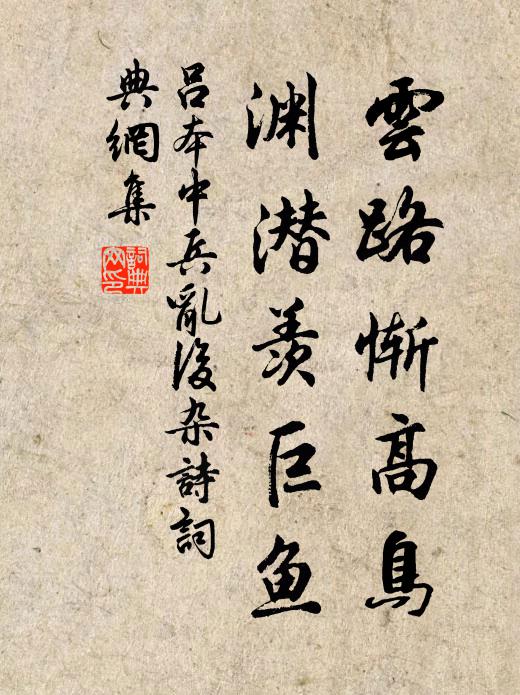 雲路慚高鳥
渊潜羡巨鱼
呂本中兵亂後杂詩詞
典網集
詞典
网印